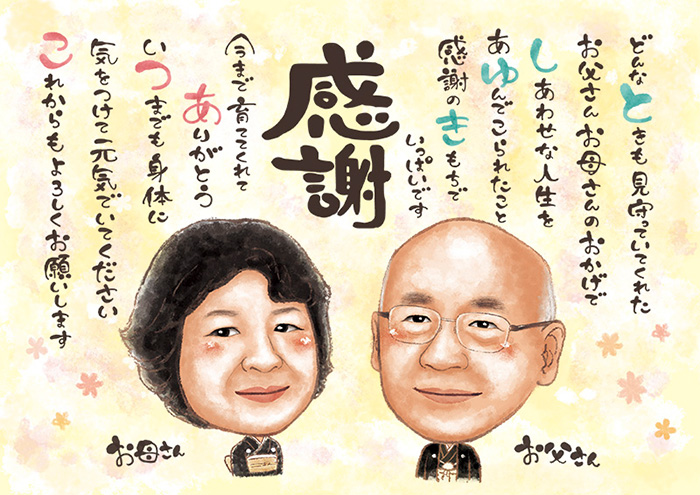 どんなときも見守っていてくれた
お父さんお母さんのおかげで
しあわせな人生を
あゆんでこられたこと
感謝のきもちで
いっぱいです
感謝
今まで育ててくれて
ありがとう
いつまでも身体に
気をつけて元気でいてください
これからもよろしくお願いします
お母さん
お父さん